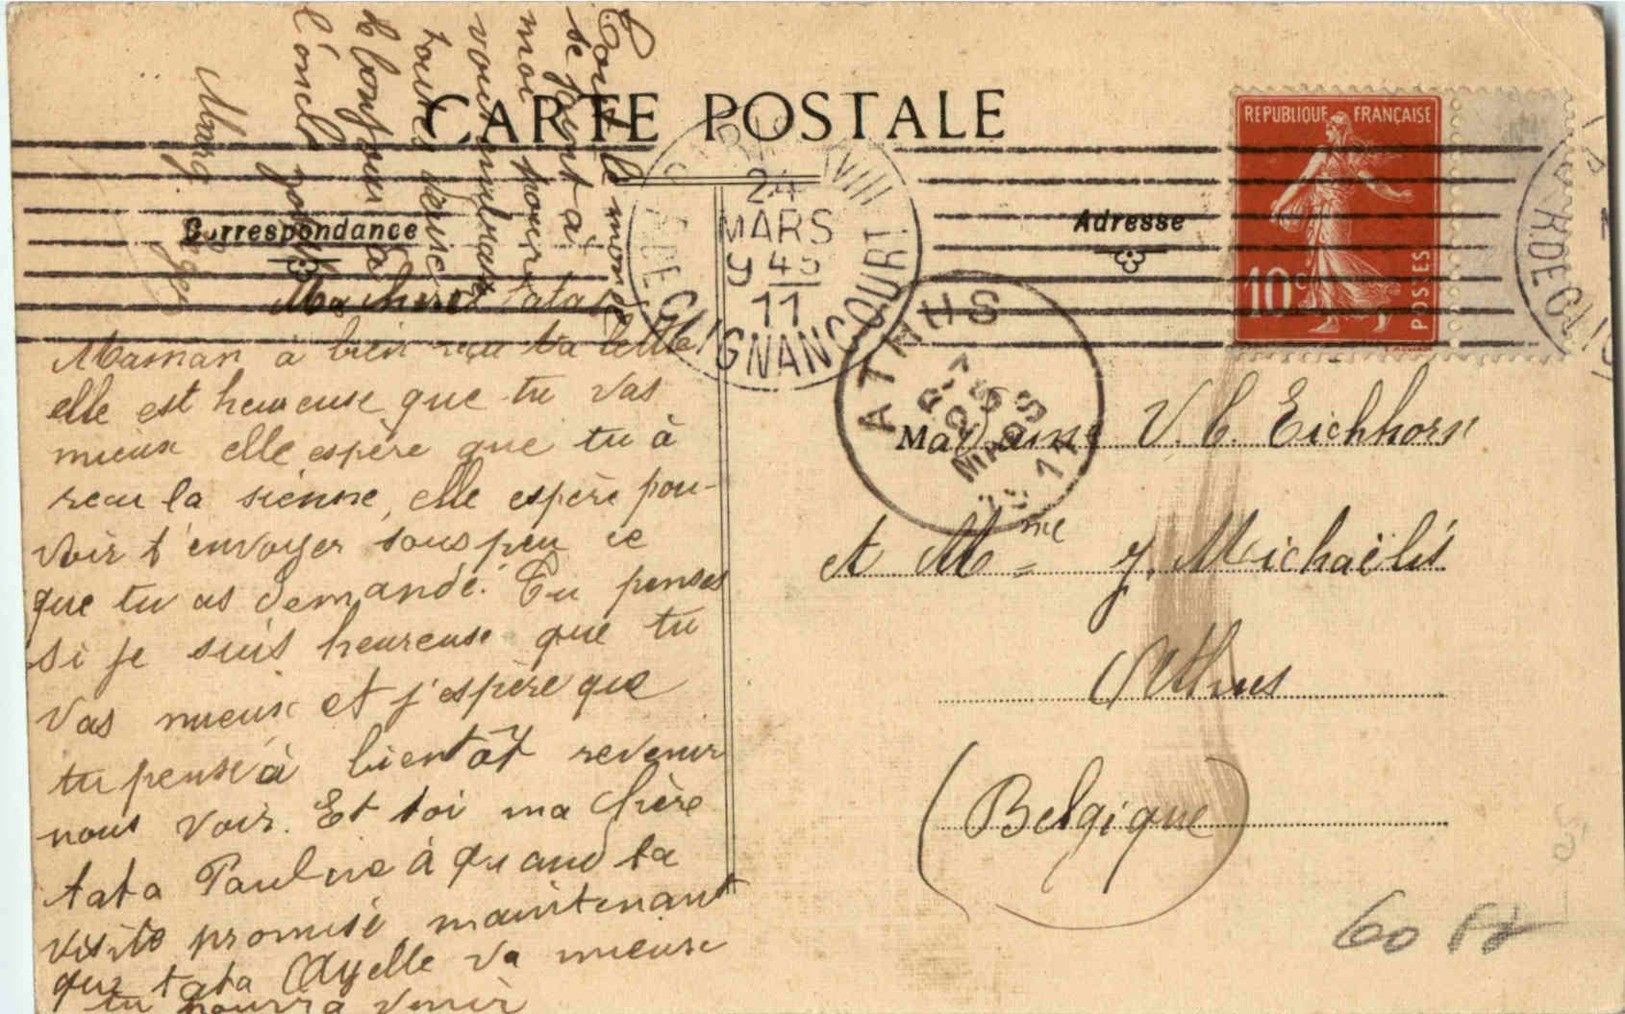 CARTE POSTALE
Correspondance
Adresse
REPUBLIQUE FRANÇAISE
10c
POSTES
24
MARS
9 45
11
CLIGNANCOURT
ATHUS
25
MARS
11
Ma chère tata
Maman à bien reçu ta lettre
elle est heureuse que tu vas
mieux elle espère que tu à
recu la sienne, elle espère pou-
voir t'envoyer sous peu ce
que tu as demandé. Tu penses
si je suis heureuse que tu
vas mieux et j'espère que
tu pense à bientôt revenir
nous voir. Et toi ma chère
tata Pauline à quand ta
visite promise maintenant
que tata Ayelle va mieux
tu pourra venir
Tout le monde
se joint à
moi pour
vous embrasser
toutes
le bonjour à
l'oncle
Madame V. C. Eichhorn
et Mme J. Michaëlis
Athus
(Belgique)
60